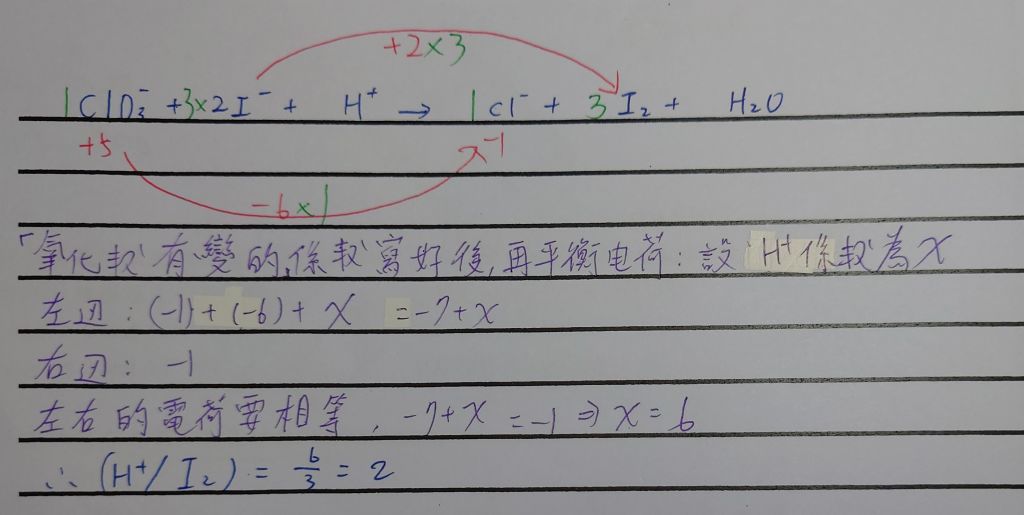 +2×3
1ClO₃⁻ +3×2I⁻ + H⁺ → 1Cl⁻ + 3I₂ + H₂O
+5 -1
-6×1
「氧化数」有變的,係数寫好後,再平衡电荷:設 H⁺係数為x
左边:(-1)+(-6)+x =-7+x
右边: -1
左右的電荷要相等, -7+x =-1⇒x=6
∴(H⁺/I₂) = 6/3 = 2